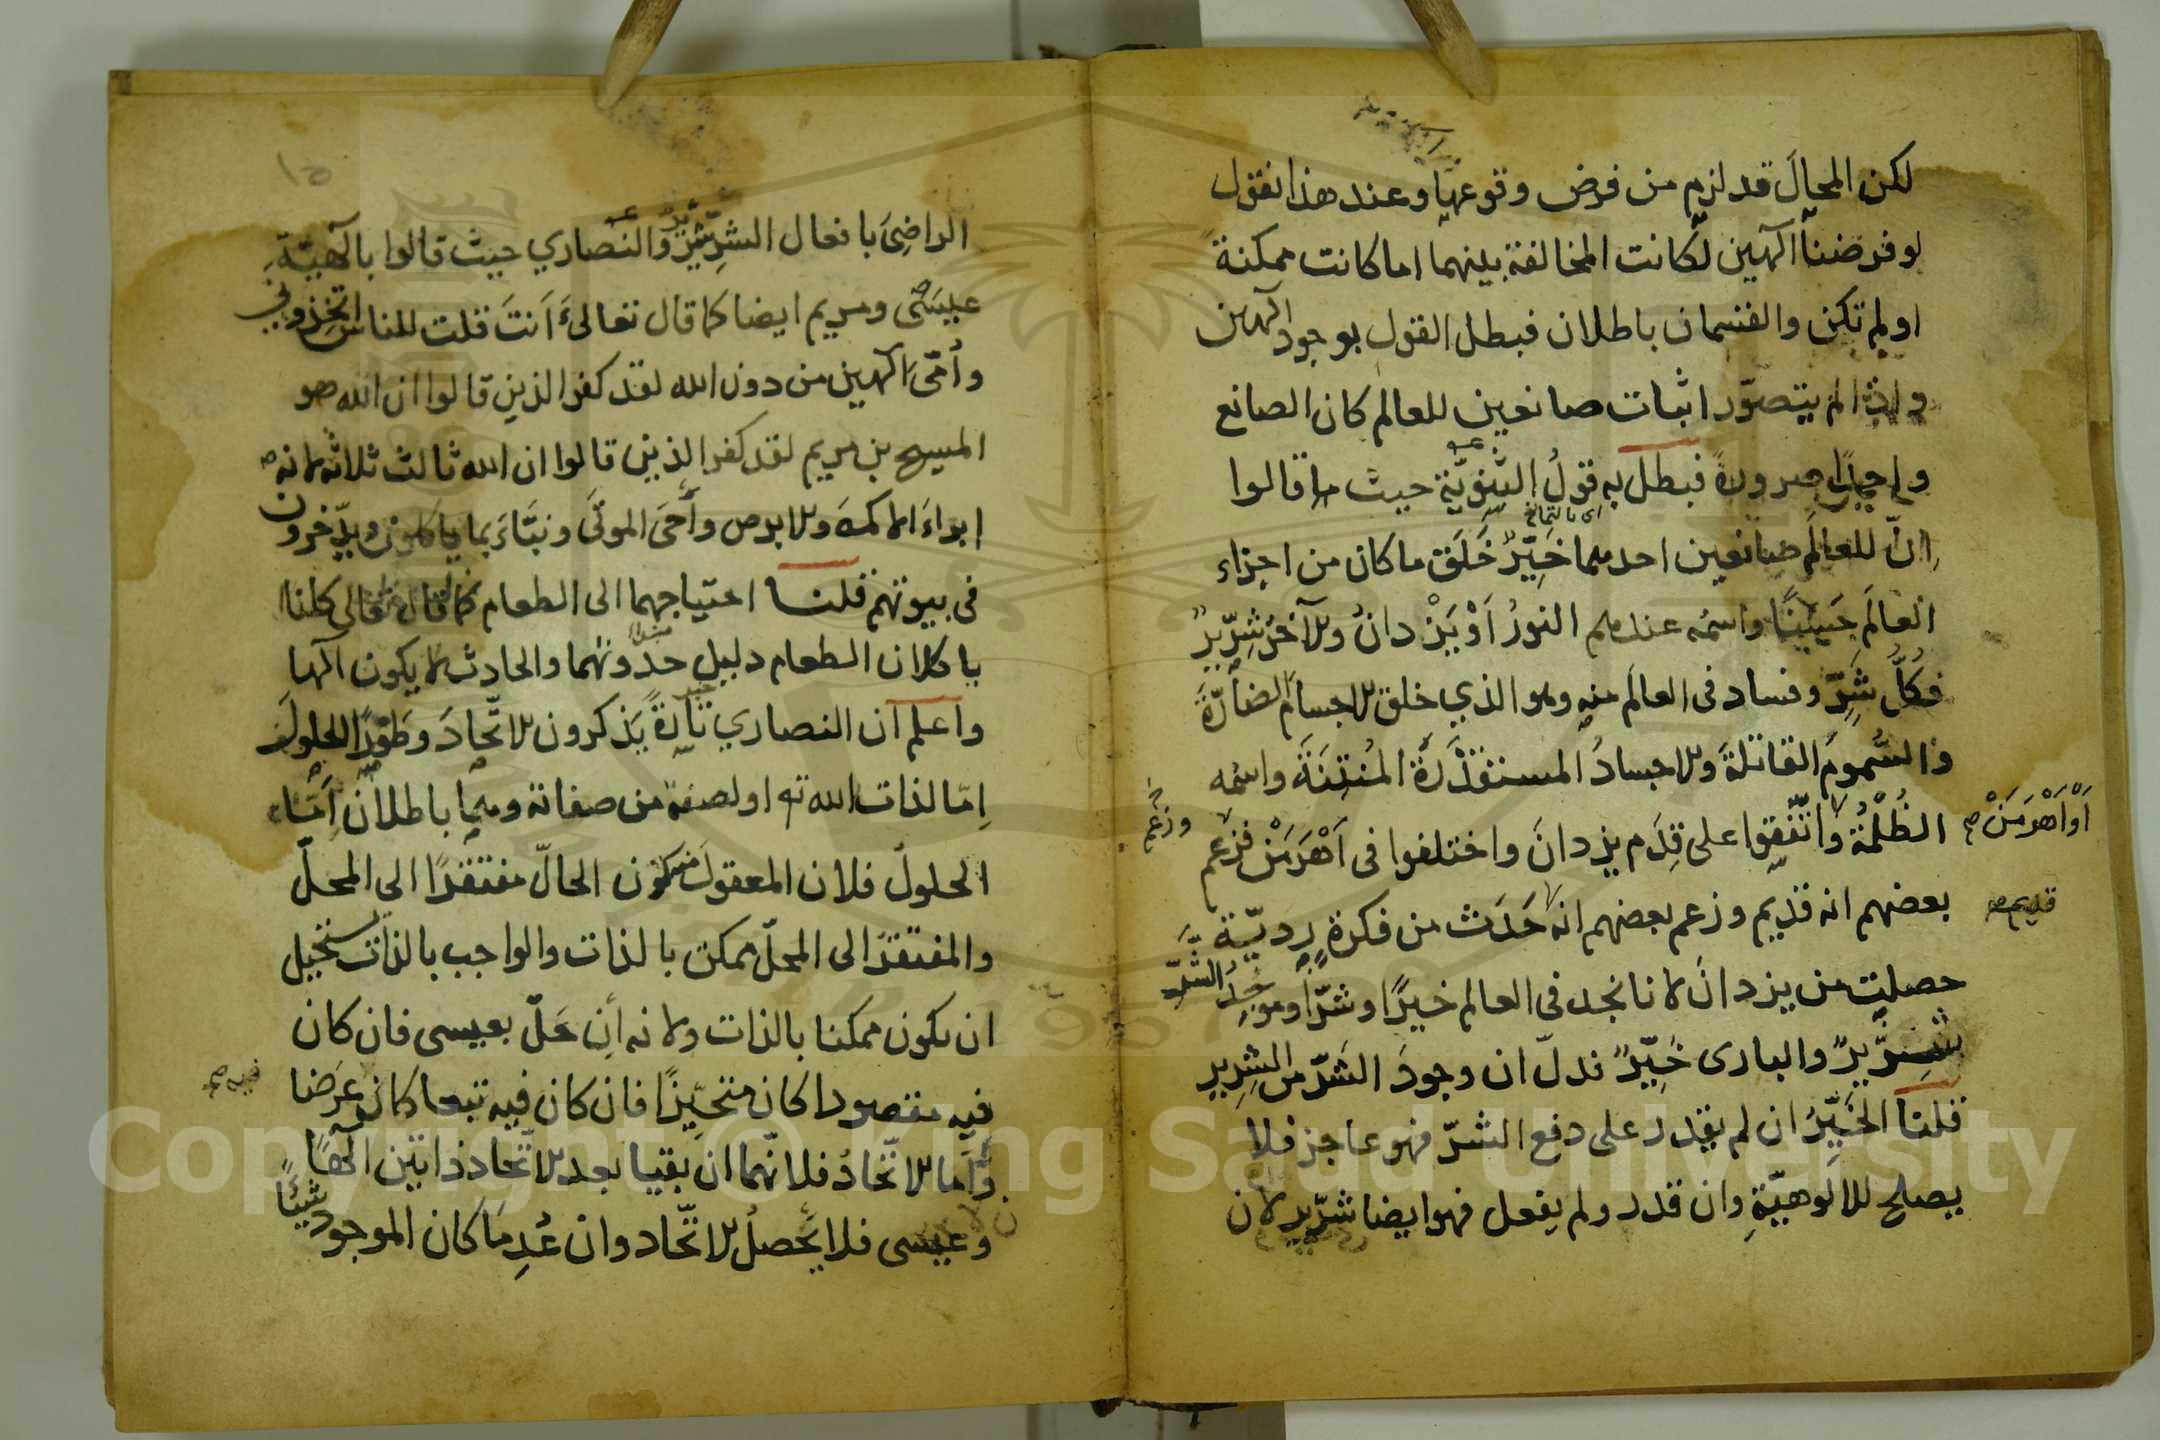 لكن المحالَ قد لزم من فرض وقوعها وعند هذا نقول
لو فرضنا آلهين لكانت المخالفة بينهما اما كانت ممكنة
او لم تكن والقسمان باطلان فبطل القول بوجود آلهين
واذا لم يتصوّر اثبات صانعين للعالم كان الصانع
واحدًا ضرورةً فبطل به قولُ الثَّنَوِيَّة حيث قالوا
اى بالتمانع
اِنّ للعالَم صانعين احدهما خَيِّرٌ خَلَقَ ما كان من اجزاء
العالَم حَسَنًا واسمُه عندهم النورُ اَوْ يَزْدانُ والآخرُ شِرِّيرٌ
فكلُّ شَرٍّ وفساد فى العالَم منه وهو الذي خلق الاجسام الضارّةَ
والسُّمومَ القاتلةَ والاجسادَ المستقذَرةَ المُنتِنَةَ واسمُه
الظُلْمُةُ واتّفقوا على قِدَم يزدانَ واختلفوا فى اَهْرَمَنْ فزعم
اَوْ اَهْرَمَنْ صح
وزعم
بعضهم انه قديم وزعم بعضهم انه حَدَث من فكرةٍ رديّة
قديم صح
حصلت من يزدانَ لانا نجد فى العالم خيرًا وشرًّا وموجِدُ الشَّرِّ
شِرِّيرٌ والبارى خَيِّرٌ فدلّ ان وجودَ الشَرِّ من الشِرِيرِ
قلنا الخَيِّرُ ان لم يقدر على دفع الشرّ فهو عاجز فلا
يصلح للالوهيّةِ وان قدر ولم يفعل فهو ايضا شرّير لان
١٥
الراضِىَ بافعال الشِرِّيرِ شِرِّيرٌ والنصاري حيث قالوا بآلهيّةِ
عيسَى ومريم ايضا كما قال تعالى ءَاَنتَ قلت للناس اتخذوني
وأُمّىَ آلهين من دون الله لقد كفر الذين قالوا ان الله هو
المسيح بن مريم لقد كفر الذين قالوا ان الله ثالث ثلاثة لانه
ابراءَ الاكمهَ والابرص وأحىَ الموتَى ونبَّاءَ بما ياكلون ويدّخرون
فى بيوتهم قلنا احتياجهما الى الطعام كما قال تعالى كانا
ياكلان الطعام دليل حدوثهما والحادث لا يكون آلها
واعلم ان النصاري تارةً يَذكرون الاتّحادَ وطَوْرًا الحلولَ
اِمّا لذات الله ته او لصفة من صفاته وهما باطلان اَمّا
الحلول فلان المعقولَ منه كون الحالّ مفتقرًا الى المحلّ
والمفتقرُ الى المحلّ ممكن بالذات والواجب بالذات يستحيل
ان يكون ممكنا بالذات ولانه اِن حَلّ بعيسى فان كان
فيه مقصودا كان متحيّزًا فان كان فيه تبعا كان عرَضا
فيه صح
وأما الاتّحادُ فلانّهما ان بقيا بعد الاتّحاد ذاتين آلهًا
وعيسى فلا يَحصلُ الاتّحاد وان عُدِمَا كان الموجود شيئًا